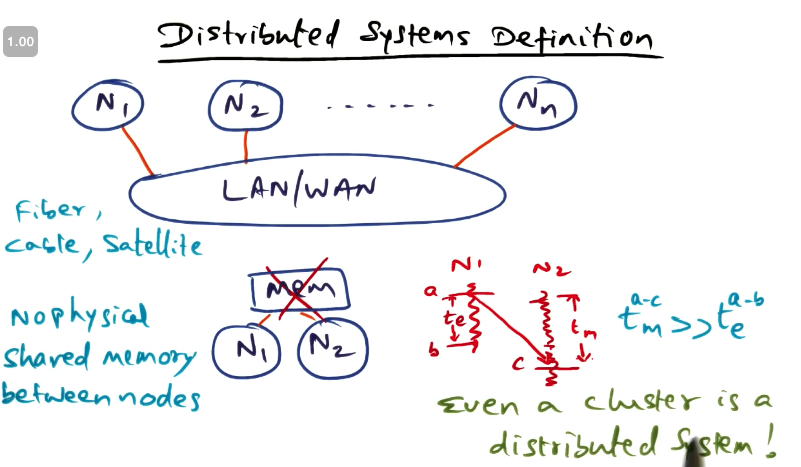 1.00
Distributed Systems Definition
N1 N2 ...... Nn
LAN/WAN
Fiber,
Cable, Satellite
No physical
shared memory
between nodes
mem
N1 N2
N1 N2
a
te
b
tm
c
tm^a-c >> te^a-b
Even a cluster is a
distributed system!